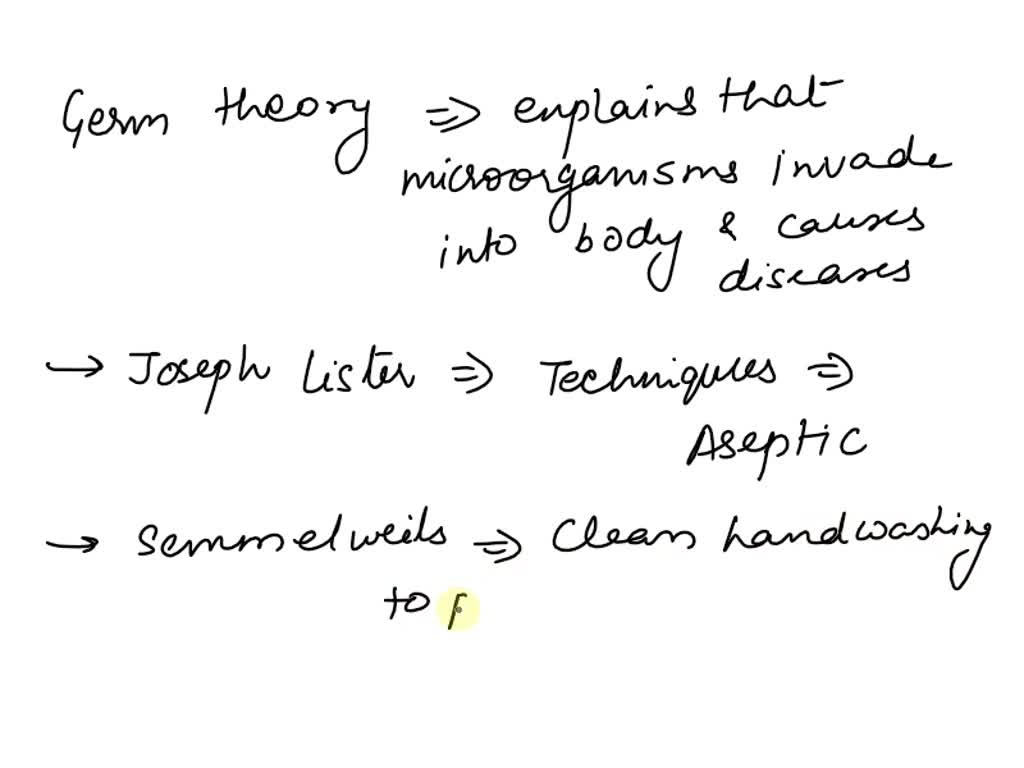 Germ theory ⇒ explains that
microorganisms invade
into body & causes
diseases
→ Joseph Lister ⇒ Techniques ⇒
Aseptic
→ Semmelweils ⇒ Clean handwashing
to